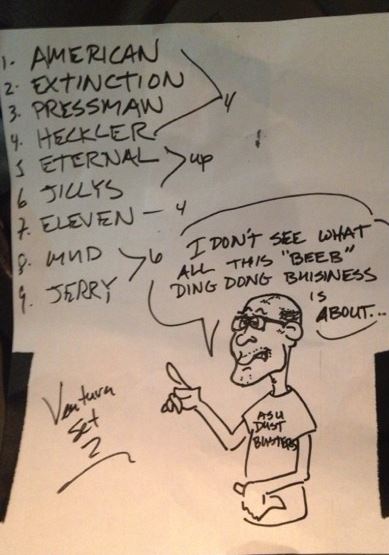 1. AMERICAN
2. EXTINCTION
3. PRESSMAN
4. HECKLER
4
5 ETERNAL
6 JILLYS
up
7. ELEVEN - 4
8. MUD
9. JERRY
6
I DON'T SEE WHAT
ALL THIS "BEEB"
DING DONG BUISINESS
IS
ABOUT...
Ventura
Set
2
ASU
DUST
BUSTERS